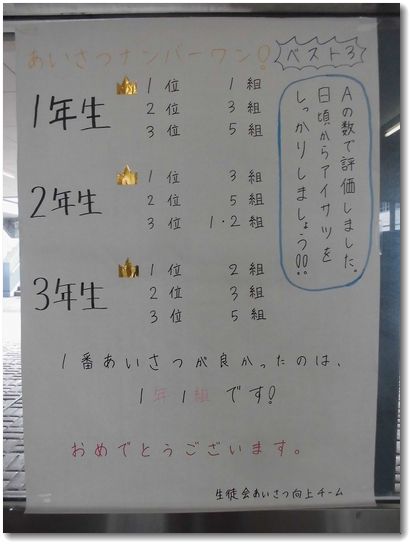 あいさつナンバーワン!
ベスト3
Aの数で評価しました。
日頃からアイサツを
しっかりしましょう!!
1年生
1位 1組
2位 3組
3位 5組
2年生
1位 3組
2位 5組
3位 1・2組
3年生
1位 2組
2位 3組
3位 5組
1番あいさつが良かったのは、
1年1組です!
おめでとうございます。
生徒会あいさつ向上チーム